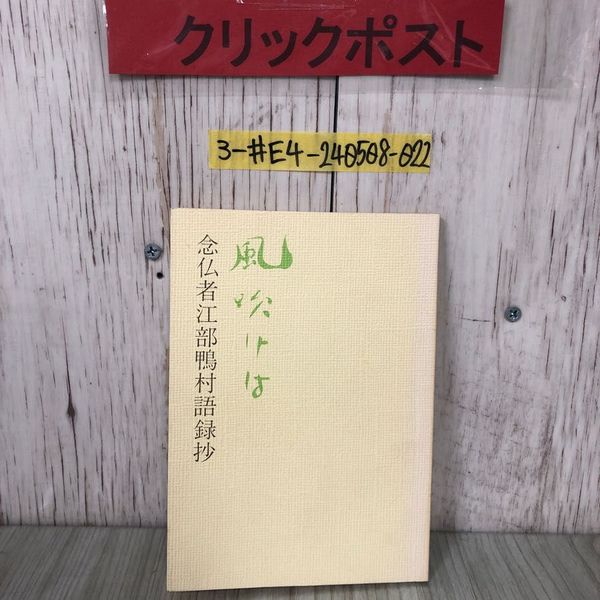 クリックポスト
3-#E4-240508-022
風吹けば
念仏者江部鴨村語録抄